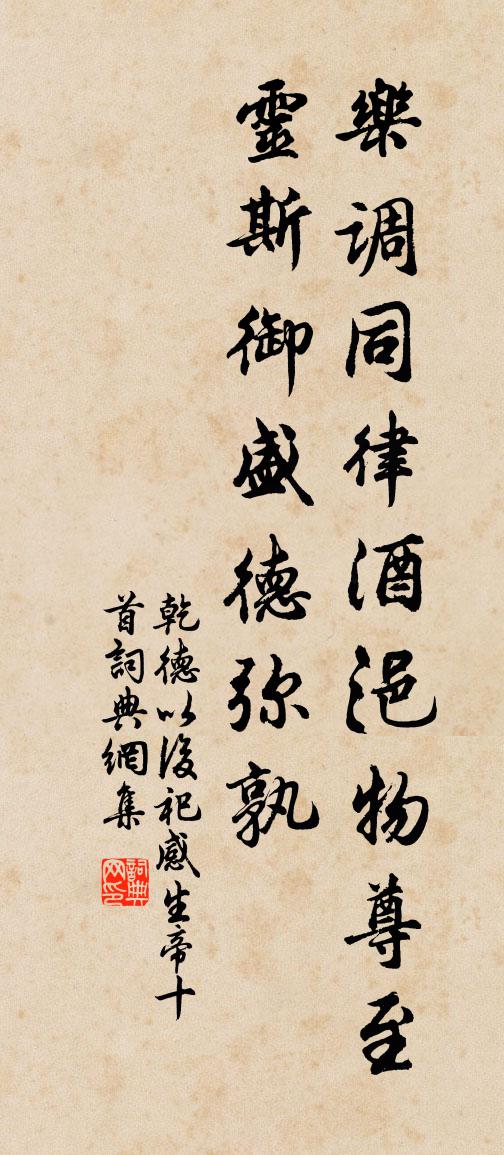 樂調同律酒浥物尊至
靈斯御盛德弥孰
乾德以後祀感生帝十
首詞典網集
詞典
网印